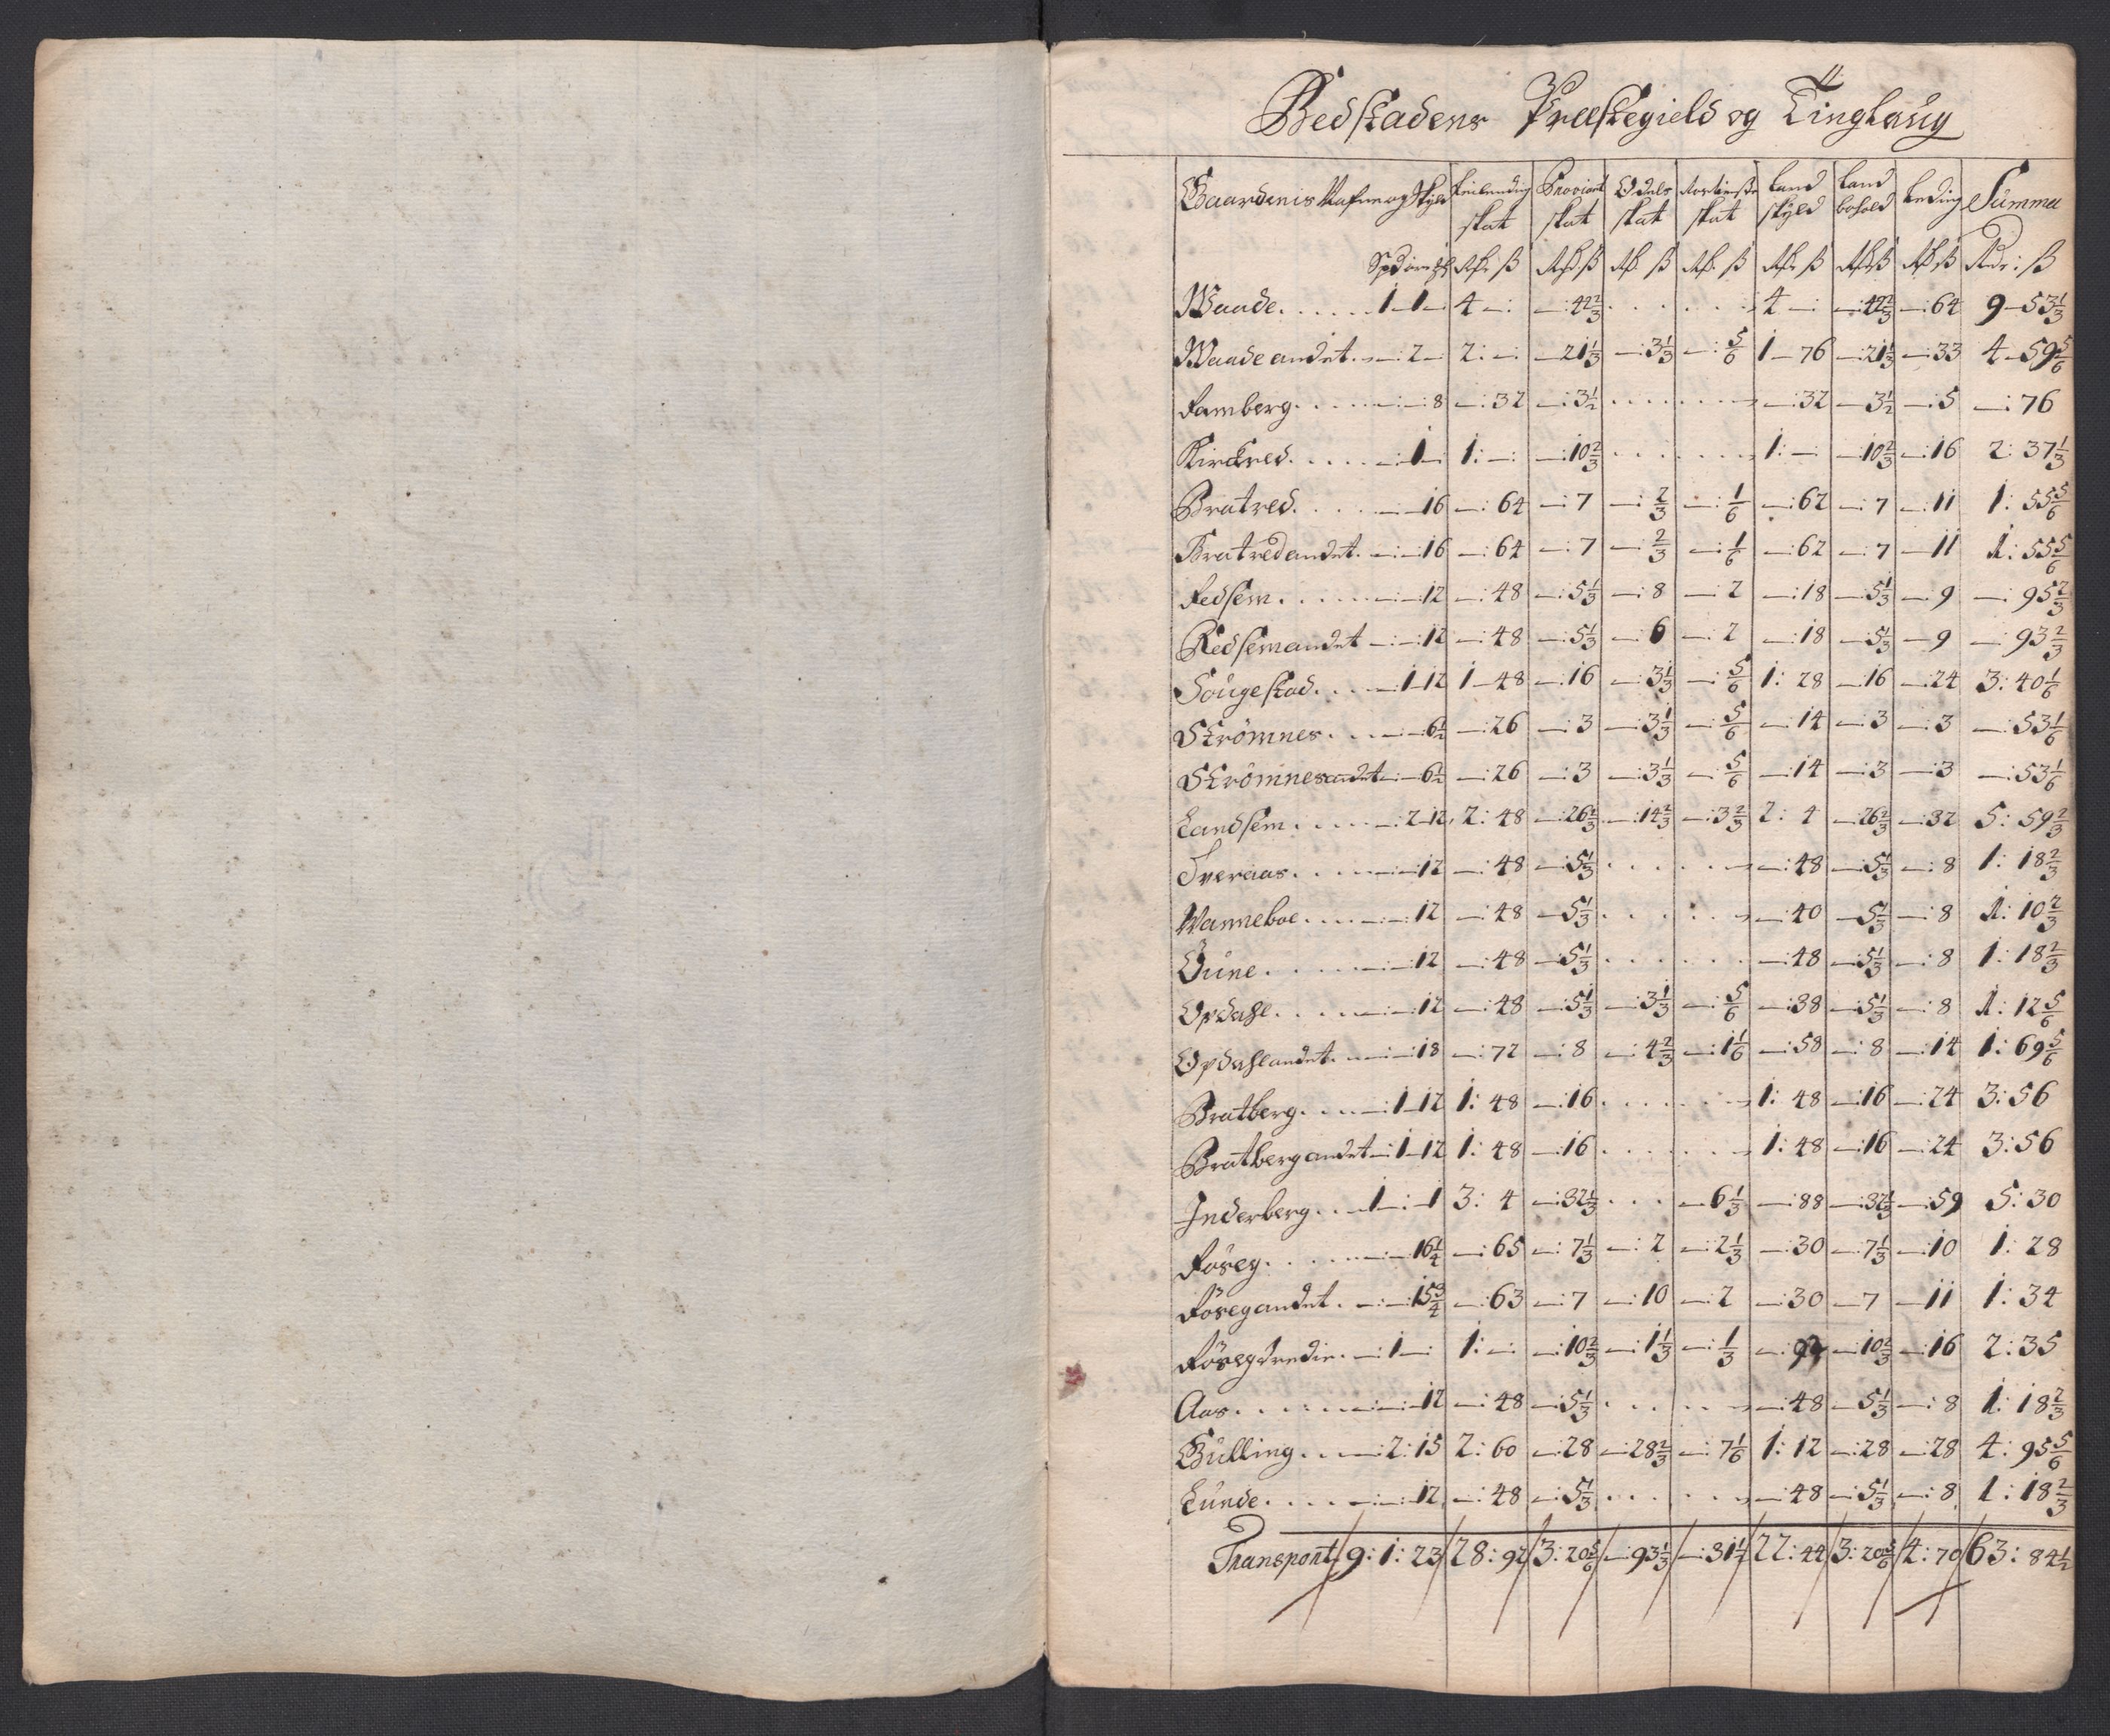 Bedstadens Præstegield og Tinglaug
Gaardenis Nafne og Skyld | Leilending skat | Proviant skat | Odels skat | Rostieniste skat | Land skyld | Land bohold | Leding | Summa
Spd øre | Rdr ß | Rdr ß | Rdr ß | Rdr ß | Rdr ß | Rdr ß | Rdr ß | Rdr: ß
Waade . . . . . 1–1– | 4 –: | –:42 2/3 | . . | . . | 4 –: | –:42 2/3 | –:64 | 9–53 1/3
Waade andet. –:2– | 2: –: | –21 1/3 | –:3 1/3 | –: 5/6 | 1–76 | –:21 1/3 | –:33 | 4–59 5/6
Ramberg. . . . –:–:8 | –:32 | –:3 1/2 | . . . | . . . | –:32 | –3 1/2 | –:5 | –:76
Kirckred. . . . . –:1–: | 1: –: | –:10 2/3 | . . . | . . . | 1: –: | –:10 2/3 | –:16 | 2: 37 1/3
Bratred. . . . –:–16 | –:64 | –:7 | –: 2/3 | –: 1/6 | –:62 | –:7 | –:11 | 1: 55 5/6
Bratred andet. –:–16 | –:64 | –:7 | –: 2/3 | –: 1/6 | –:62 | –:7 | –11 | 1: 55 5/6
Redsem. . . . . –:–12 | –:48 | –:5 1/3 | –:8 | –:2 | –:18 | –:5 1/3 | –:9 | –:95 2/3
Redsem andet –:–12 | –:48 | –:5 1/3 | –:6 | –:2 | –:18 | –:5 1/3 | –9 | –:93 2/3
Sougestad. . . –:1–12 | 1–48 | –:16 | –:3 1/3 | –: 5/6 | 1: 28 | –:16 | –:24 | 3: 40 1/6
Strömnes. . . –:–:6 1/2 | –:26 | –:3 | –:3 1/3 | –: 5/6 | –:14 | –:3 | –:3 | –:53 1/6
Strömnes andet –:–6 1/2 | –:26 | –:3 | –:3 1/3 | –: 5/6 | –:14 | –:3 | –:3 | –:53 1/6
Landsem. . . . –:2–12 | 2: 48 | –:26 2/3 | –:14 2/3 | –:3 2/3 | 2: 4 | –:26 2/3 | –:32 | 5: 59 2/3
Tveraas. . . . –:–12 | –:48 | –:5 1/3 | . . . | . . . | –:48 | –:5 1/3 | –:8 | 1: 18 2/3
Wanneboe. . . –:–:12 | –:48 | –:5 1/3 | . . . | . . . | –:40 | –:5 1/3 | –:8 | 1: 10 2/3
Oune. . . . . –:–:12 | –:48 | –:5 1/3 | . . . | . . . | –:48 | –:5 1/3 | –:8 | 1: 18 2/3
Opdahl. . . . –:–12 | –:48 | –:5 1/3 | –:3 1/3 | –: 5/6 | –:38 | –:5 1/3 | –:8 | 1: 12 5/6
Opdahl andet. –:–:18 | –:72 | –:8 | –:4 2/3 | –:1 1/6 | –:58 | –:8 | –:14 | 1: 69 5/6
Bratberg. . . –:1–12 | 1: 48 | –:16 | . . . | . . . | 1: 48 | –:16 | –:24 | 3: 56
Bratberg andet –:1–12 | 1: 48 | –:16 | . . . | . . . | 1: 48 | –:16 | –:24 | 3: 56
Inderberg. . . 1:–:1 | 3: 4 | –:32 1/3 | . . . | –6 1/3 | –:88 | –:32 1/3 | –:59 | 5: 30
Röseg. . . . –:–16 1/4 | –:65 | –:7 1/3 | –:2 | –:2 1/3 | –:30 | –:7 1/3 | –:10 | 1: 28
Röseg andet. –:–:15 3/4 | –:63 | –:7 | –:10 | –:2 | –:30 | –7 | –11 | 1: 34
Röseg tredie. –:1–: | 1: –: | –:10 2/3 | –:1 1/3 | –: 1/3 | –: | –:10 2/3 | –:16 | 2: 35
Aas. . . . . –:–:12 | –:48 | –:5 1/3 | . . . | . . . | –:48 | –:5 1/3 | –:8 | 1: 18 2/3
Gulling. . . –:2: 15 | 2: 60 | –:28 | –:28 2/3 | –:7 1/6 | 1: 12 | –:28 | –:28 | 4: 95 5/6
Lunde. . . . –:–:12 | –:48 | –:5 1/3 | . . . | . . . | –:48 | –:5 1/3 | –:8 | 1: 18 2/3
Transport 9: 1: 23 | 28: 92 | 3: 20 5/6 | –:93 1/3 | –:31 1/2 | 22: 44 | 3: 20 5/6 | 4: 70 | 63: 84 1/2